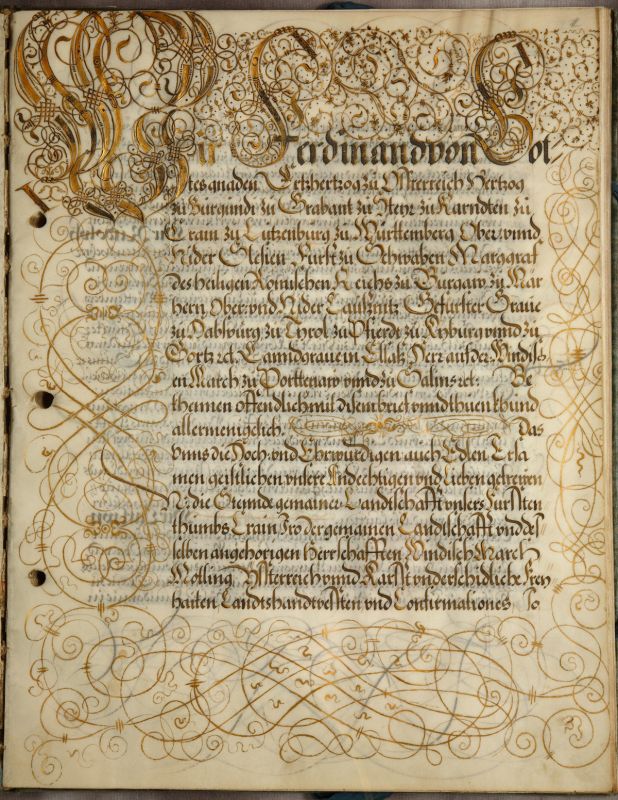 Wir Ferdinand von Got
tes gnaden Ertzhertzog zu Österreich Hertzog
zu Burgundt zu Brabant zu Steyr zu Karndten zu
Crain zu Lutzenburg zu Württemberg Ober vnnd
Nider Slesien Furst zu Schwaben Marggraf
des heiligen Römischen Reichs zu Burgaw zu Mar
hern Ober vnd Nider Lausnitz Gefurster Graue
zu Habspurg zu Tyrol zu Pfierdt zu Kyburg vnnd zu
Görtz ꝛc. Lanndgraue in Ellsaß Herr auf der Windisch
en March zu Portenaw vnnd zu Salins ꝛc. Be
khennen offendlich mit disem brief vnnd thuen khund
allermenigclich Das
vnns die Hoch vnd Ehrwürdigen auch Edlen Ersa
men geistlichen vnsere Andechtigen vnd Lieben getrewen
N. die Stennde gemainer Landtschafft vnsers Fursten
thumbs Crain Iro der gemainen Landtschafft vnd des
selben angehörigen Herrschafften Windisch March
Mötling Ysterreich vnnd Karsst vnderschidliche Frey
haiten Landtshandtvessten vnd Confirmationes so